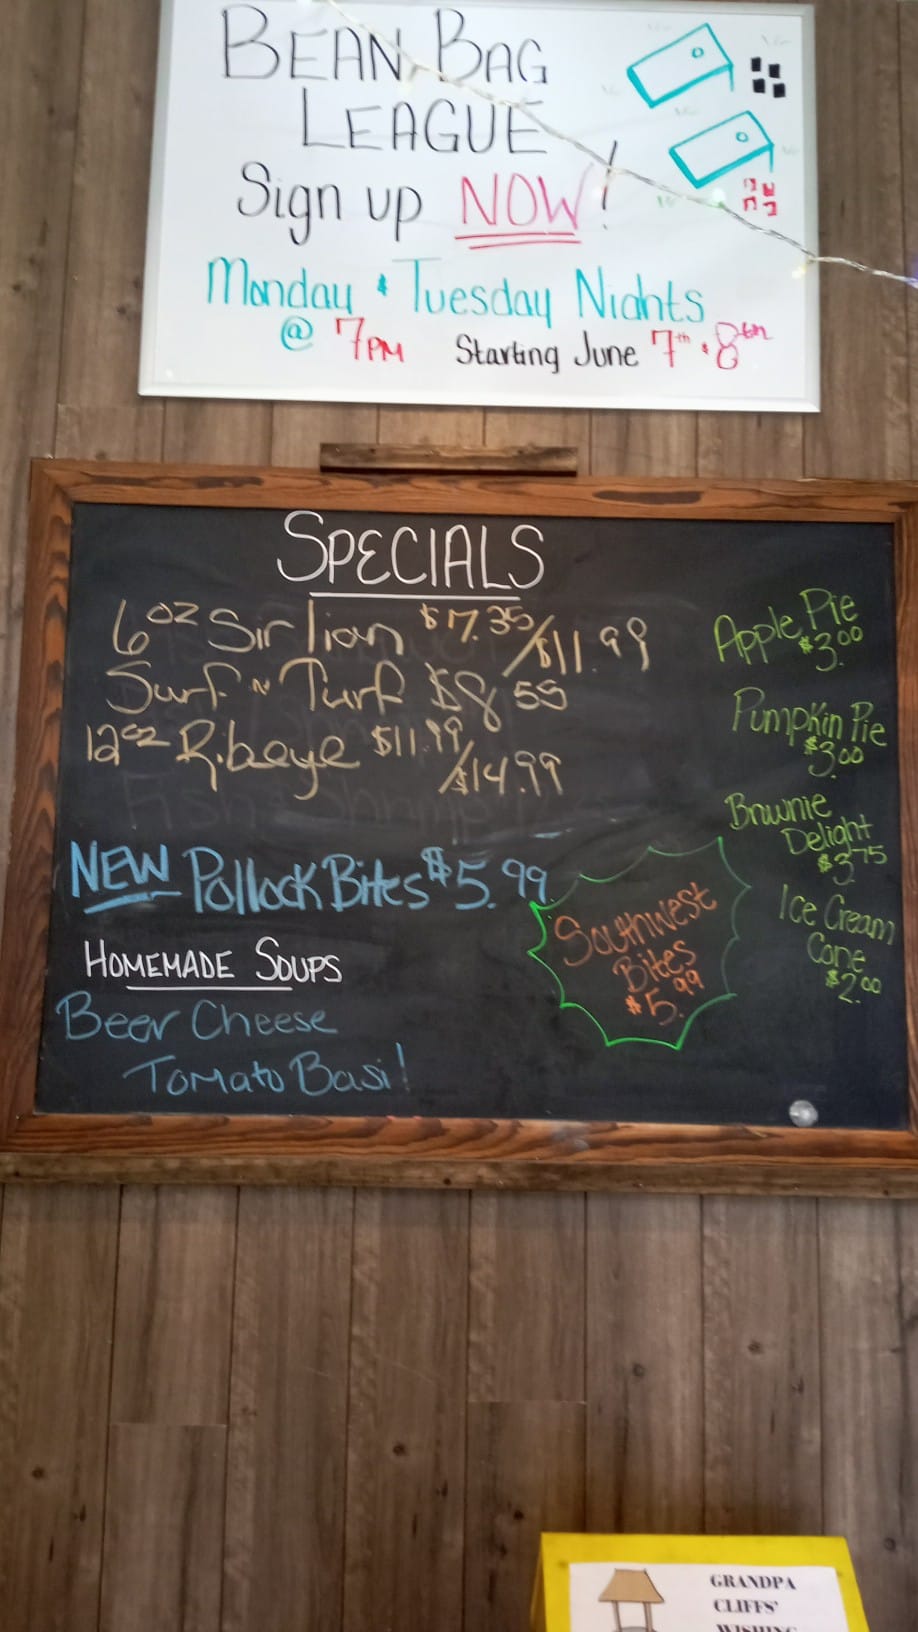 BEAN BAG
LEAGUE
Sign up NOW!
Monday & Tuesday Nights
@ 7PM Starting June 7th & 8th
SPECIALS
6oz Sir lian $7.35/$11.99
Surf n Turf $8.55
12oz Ribeye $11.99/$14.99
NEW Pollock Bites $5.99
HOMEMADE SOUPS
Beer Cheese
Tomato Basil
Southwest
Bites
$5.99
Apple Pie
$3.00
Pumpkin Pie
$3.00
Brownie
Delight
$3.75
Ice Cream
Cone
$2.00
GRANDPA
CLIFFS'
WISHING